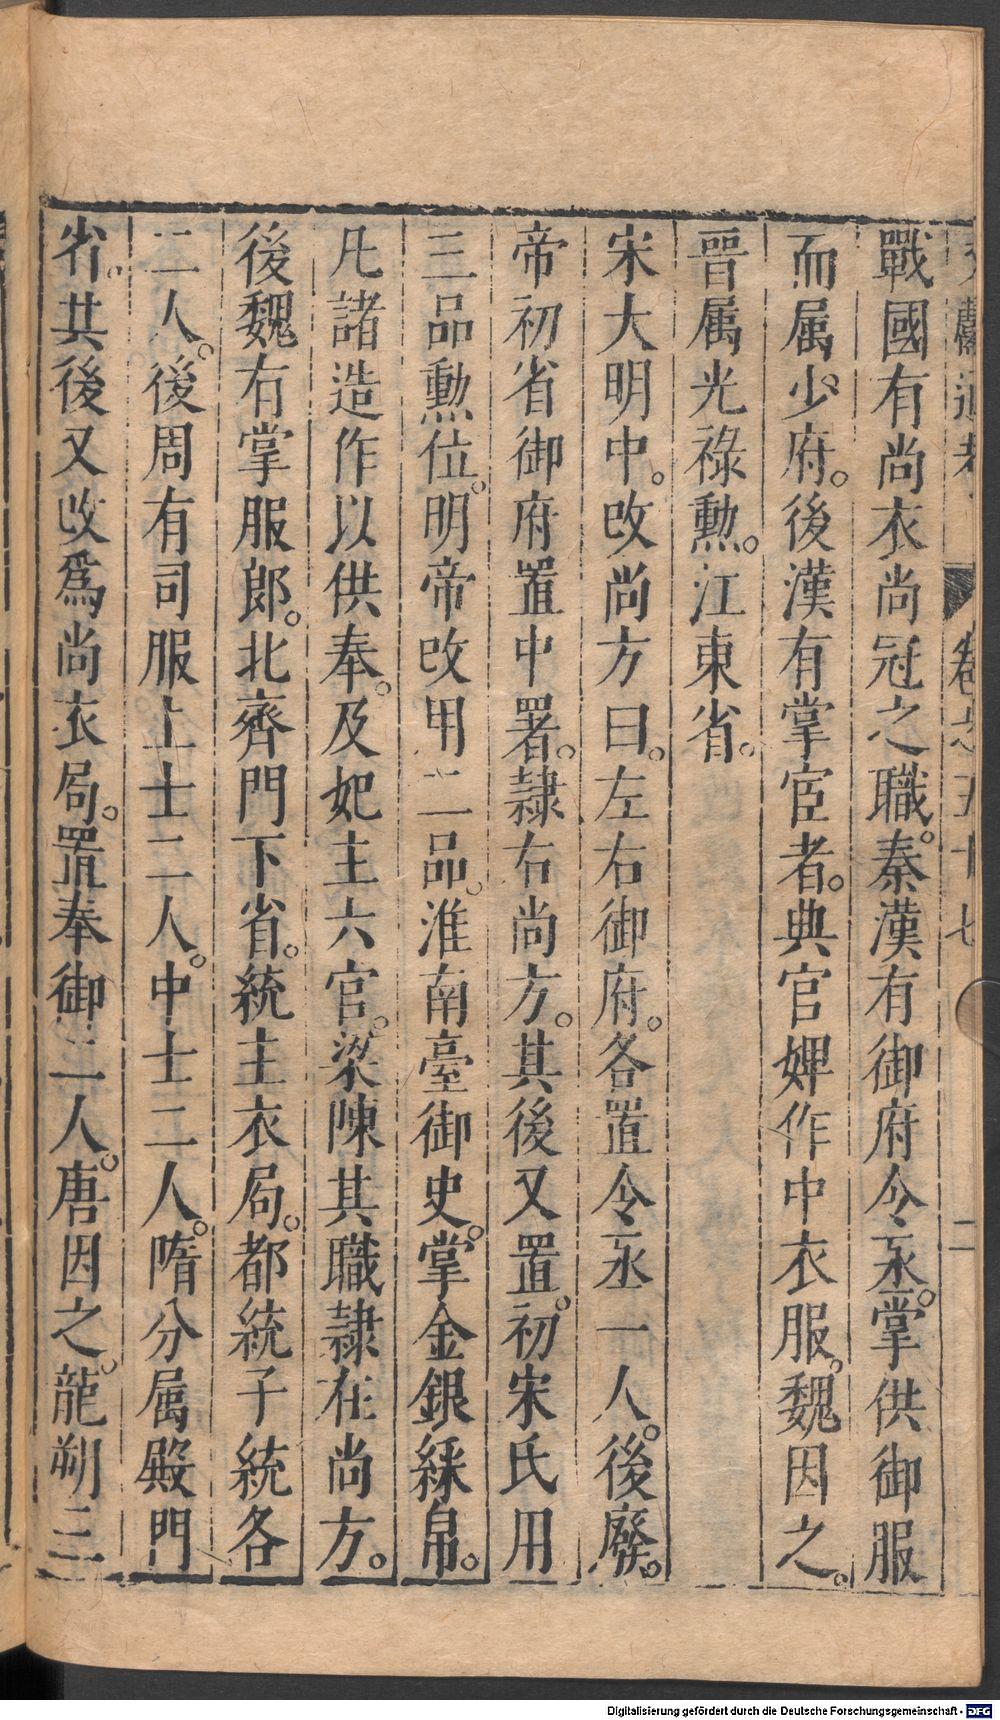 文獻通考 卷之五十七 二
戰國有尚衣尚冠之職。秦漢有御府令丞。掌供御服
而属少府。後漢有掌宦者。典官婢作中衣服。魏因之。
晉属光祿勲。江東省。
宋大明中。改尚方曰。左右御府。各置令丞一人。後廢。
帝初省御府置中署。隷右尚方。其後又置。初宋氏用
三品勲位。明帝改用二品。淮南臺御史。掌金銀綵帛。
凡諸造作以供奉。及妃主六官。梁陳其職隷在尚方。
後魏有掌服郎。北齊門下省。統主衣局。都統子統各
二人。後周有司服上士二人。中士二人。隋分属殿門
省。其後又改爲尚衣局。置奉御二人。唐因之。龍朔三
Digitalisierung gefördert durch die Deutsche Forschungsgemeinschaft - DFG